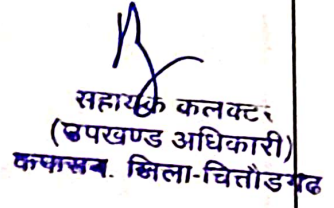 सहायक कलक्टर
(उपखण्ड अधिकारी)
कपासन. जिला-चित्तौडगढ